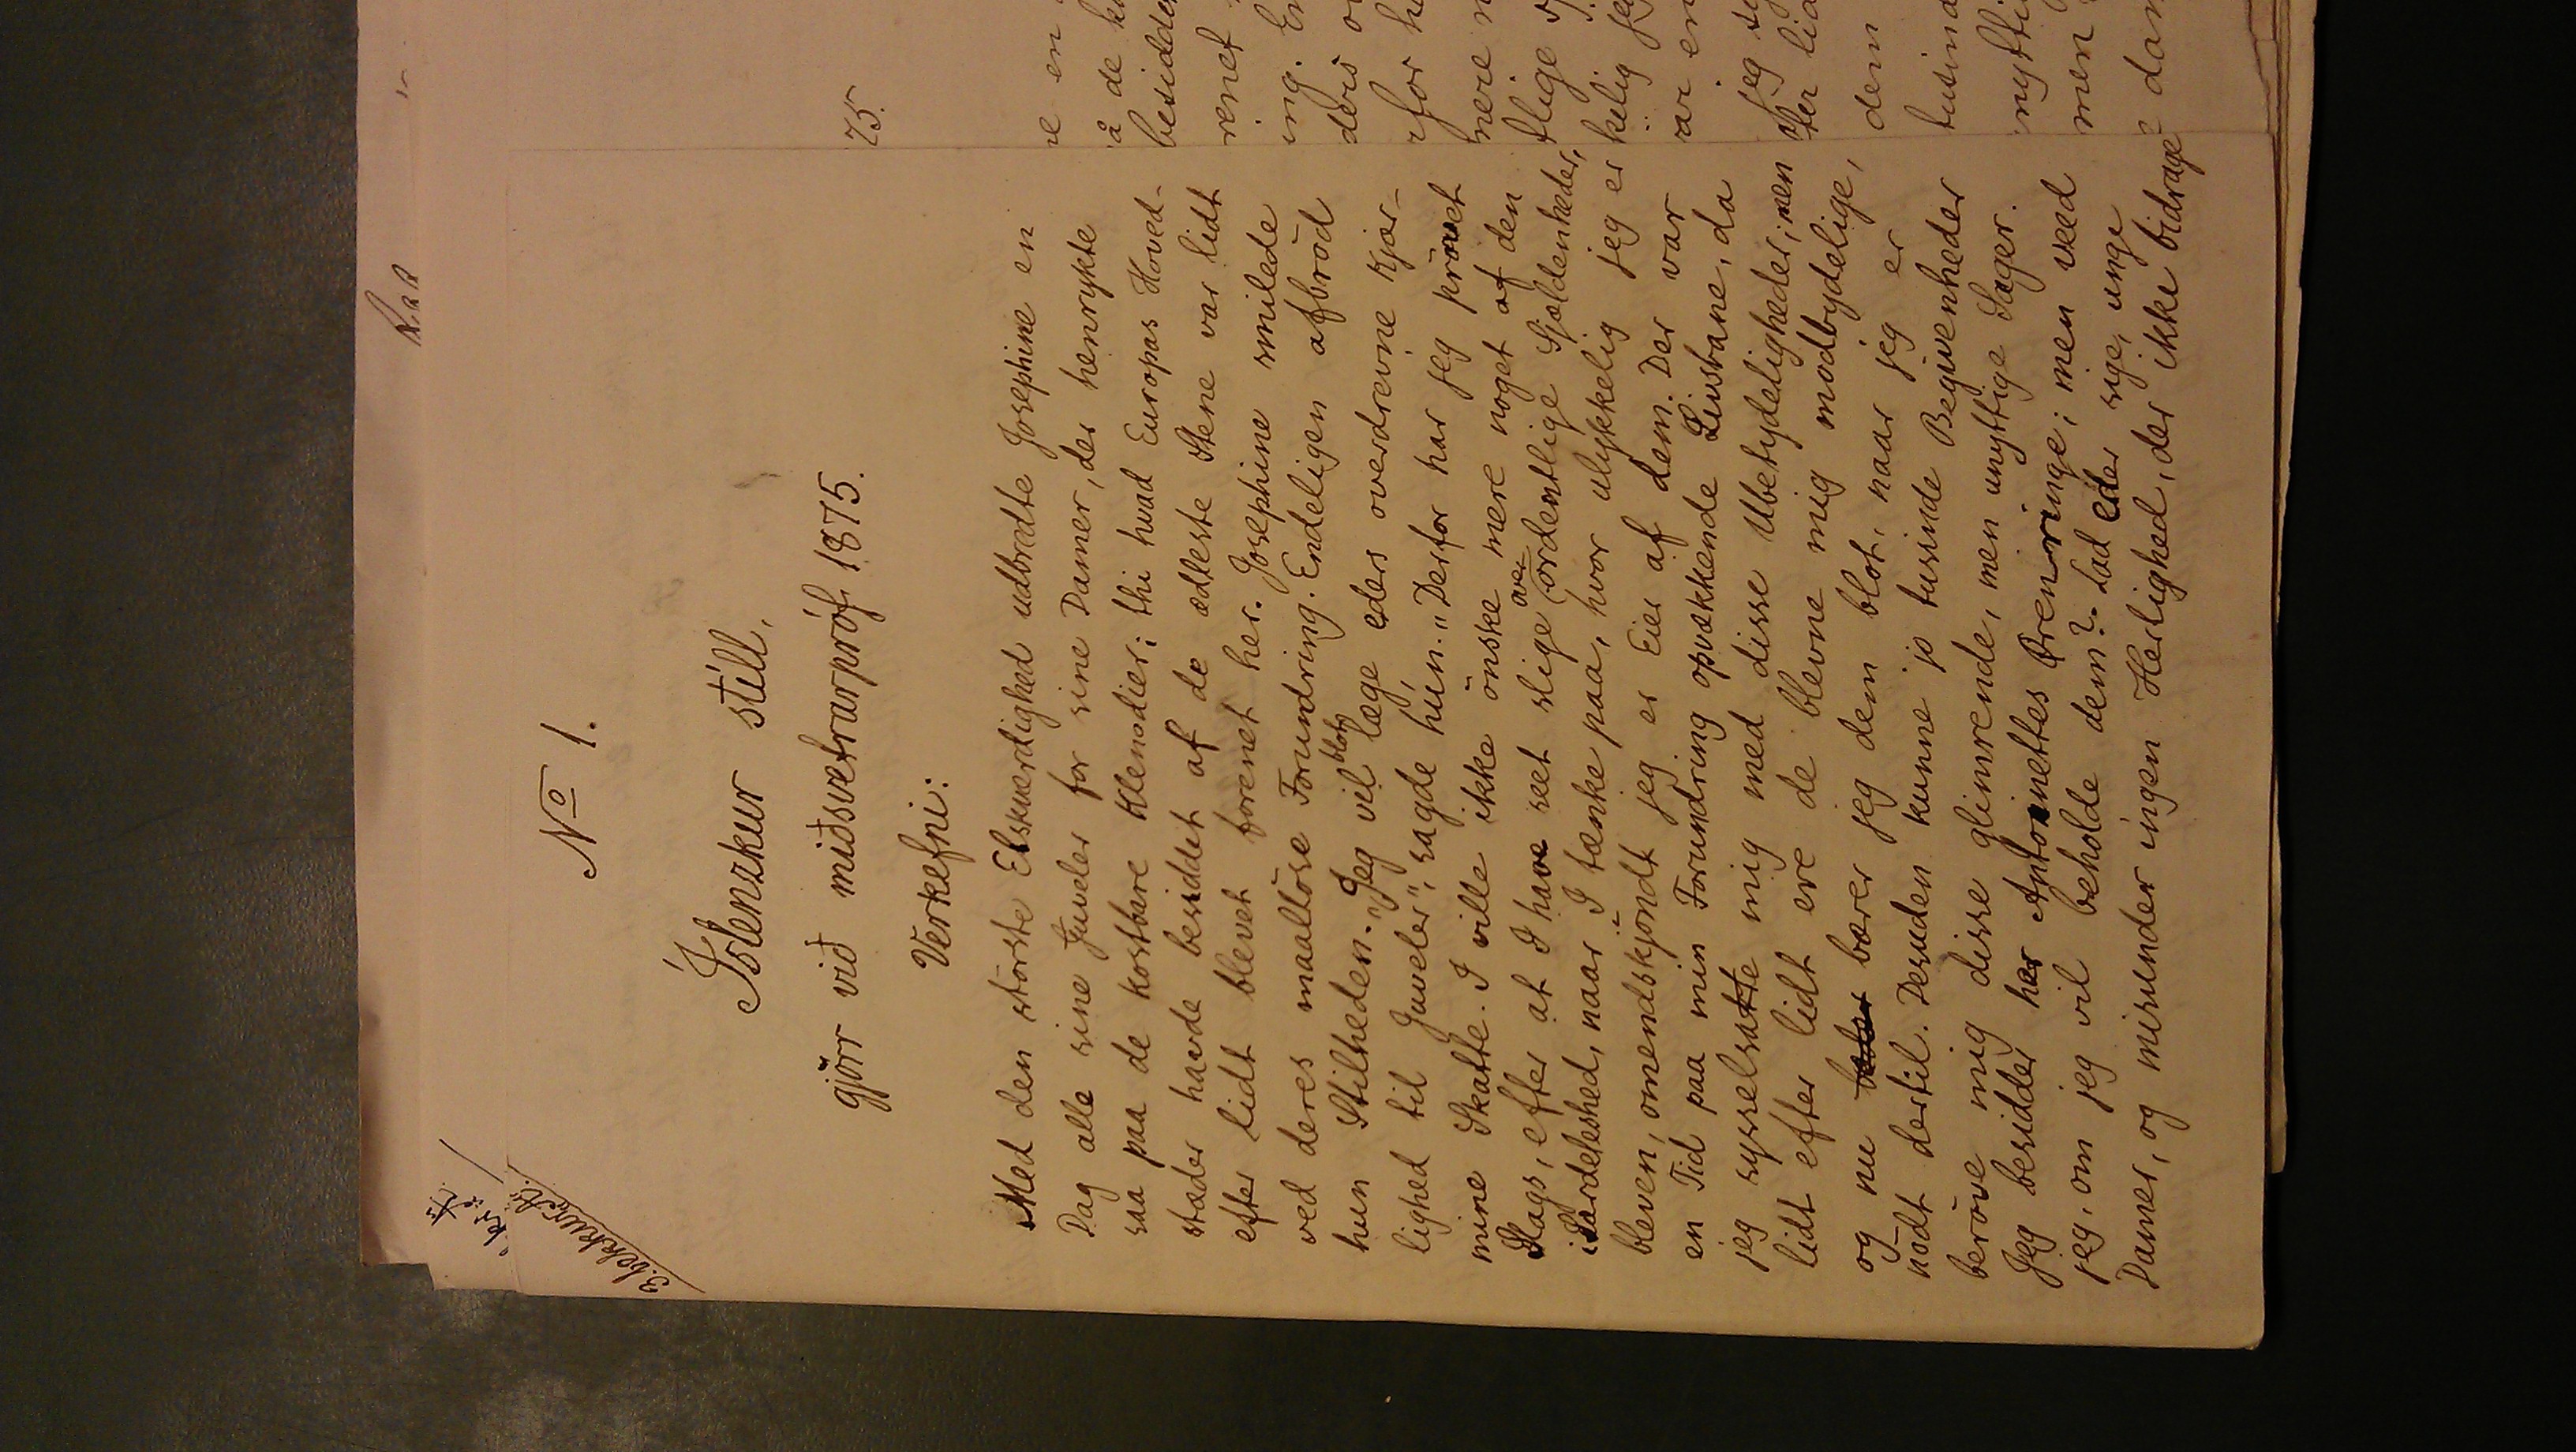 3. bekkur
No 1.
Íslenzkur stíll,
gjörr við miðsvetrarpróf 1875.
Verkefni:
Med den störste Elskværdighed udbredte Josephine en
Dag alle sine Juveler for sine Damer, der henrykte
saa paa de kostbare Klenodier; thi hvad Europas Hoved-
stæder havde besiddet af de ædleste Stene var lidt
efter lidt blevet forenet her. Josephine smilede
ved deres maallöse Forundring. Endeligen afbröd
hun Stilheden. "Jeg vil blot læge eders overdrevne Kjær-
lighed til Juveler", sagde hun. "Derfor har jeg prövet
mine Skatte. I ville ikke önske mere noget af den
Slags, efter at I have seet slige overordentlige Sjældenheder,
i Særdeleshed, naar I tænke paa, hvor ulykkelig jeg er
bleven, omendskjöndt jeg er Eier af dem. Der var
en Tid paa min Forundring opvækkende Livsbane, da
jeg sysselsatte mig med disse Ubetydeligheder; men
lidt efter lidt ere de blevne mig modbydelige,
og nu bærer jeg dem blot, naar jeg er
nödt dertil. Desuden kunne jo tusinde Begivenheder
beröve mig disse glimrende, men unyttige Sager.
Jeg besidder her Antoinettes Örenringe; men veed
jeg, om jeg vil beholde dem? Lad eder sige, unge
Damer, og misunder ingen Herlighed, der ikke bidrage
75.
e en
å de
besidder
renet
ing.
deris
for
mere
tlige
kelig
ar en
jeg
ter
dem
tusind
nytti
men
dam